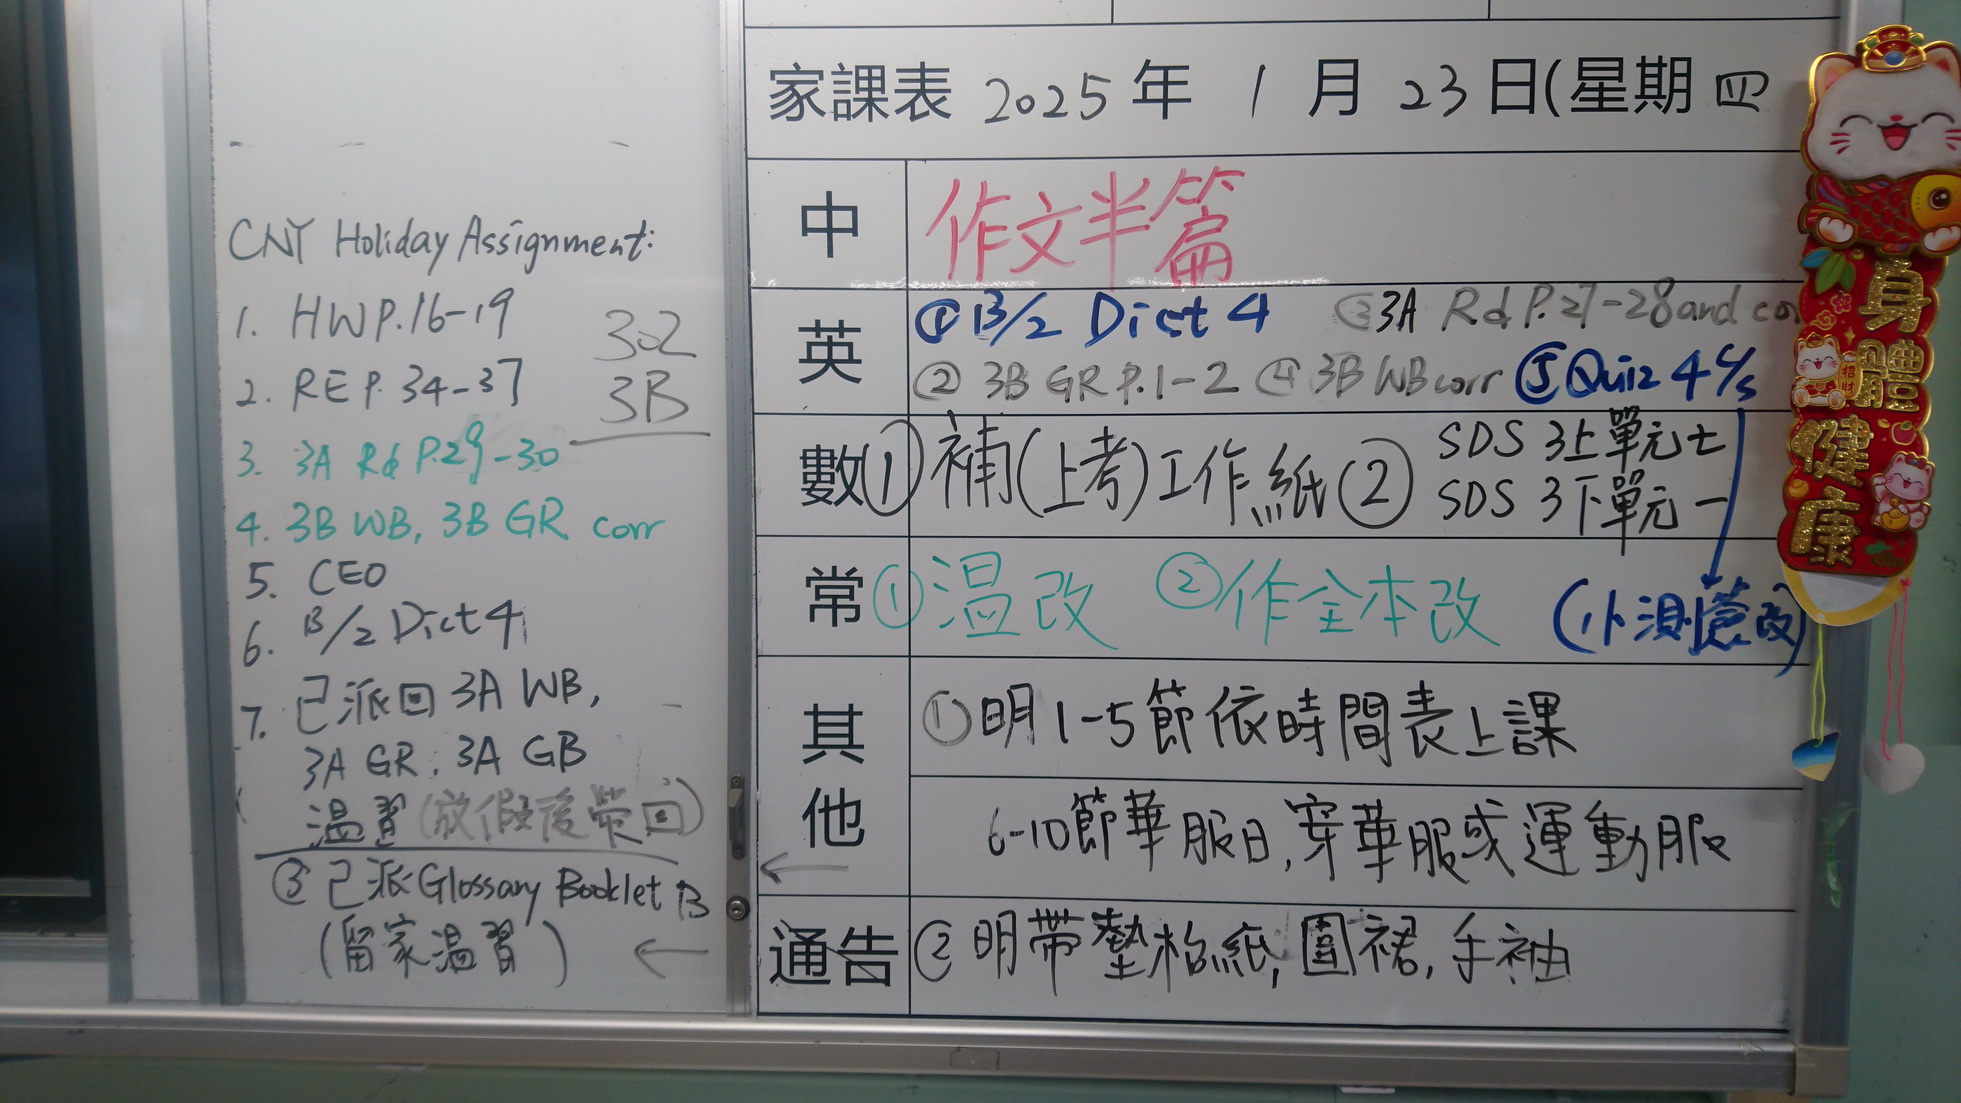 CNY Holiday Assignment:
1. HW P.16-19
2. RE P. 34-37
302
3B
3. 3A Rd P.29-30
4. 3B WB, 3B GR corr
5. CEO
6. B/2 Dict 4
7. 已派回 3A WB,
3A GR, 3A GB
溫習(放假後帶回)
③ 已派Glossary Booklet B
(留家溫習)
家課表 2025 年 1 月 23 日(星期 四
中 作文半篇
英 ① B/2 Dict 4 ③ 3A Rd P.27-28 and co
② 3B GR P.1-2 ④ 3B WB corr ⑤ Quiz 4 c/s
數 ① 補(上考)工作紙 ② SDS 3上單元七
SDS 3下單元一
常 ① 溫改 ② 作全本改
其他 ① 明1-5節依時間表上課
6-10節華服日,穿華服或運動服
通告 ② 明帶墊枱紙,圍裙,手袖
身體健康
招財